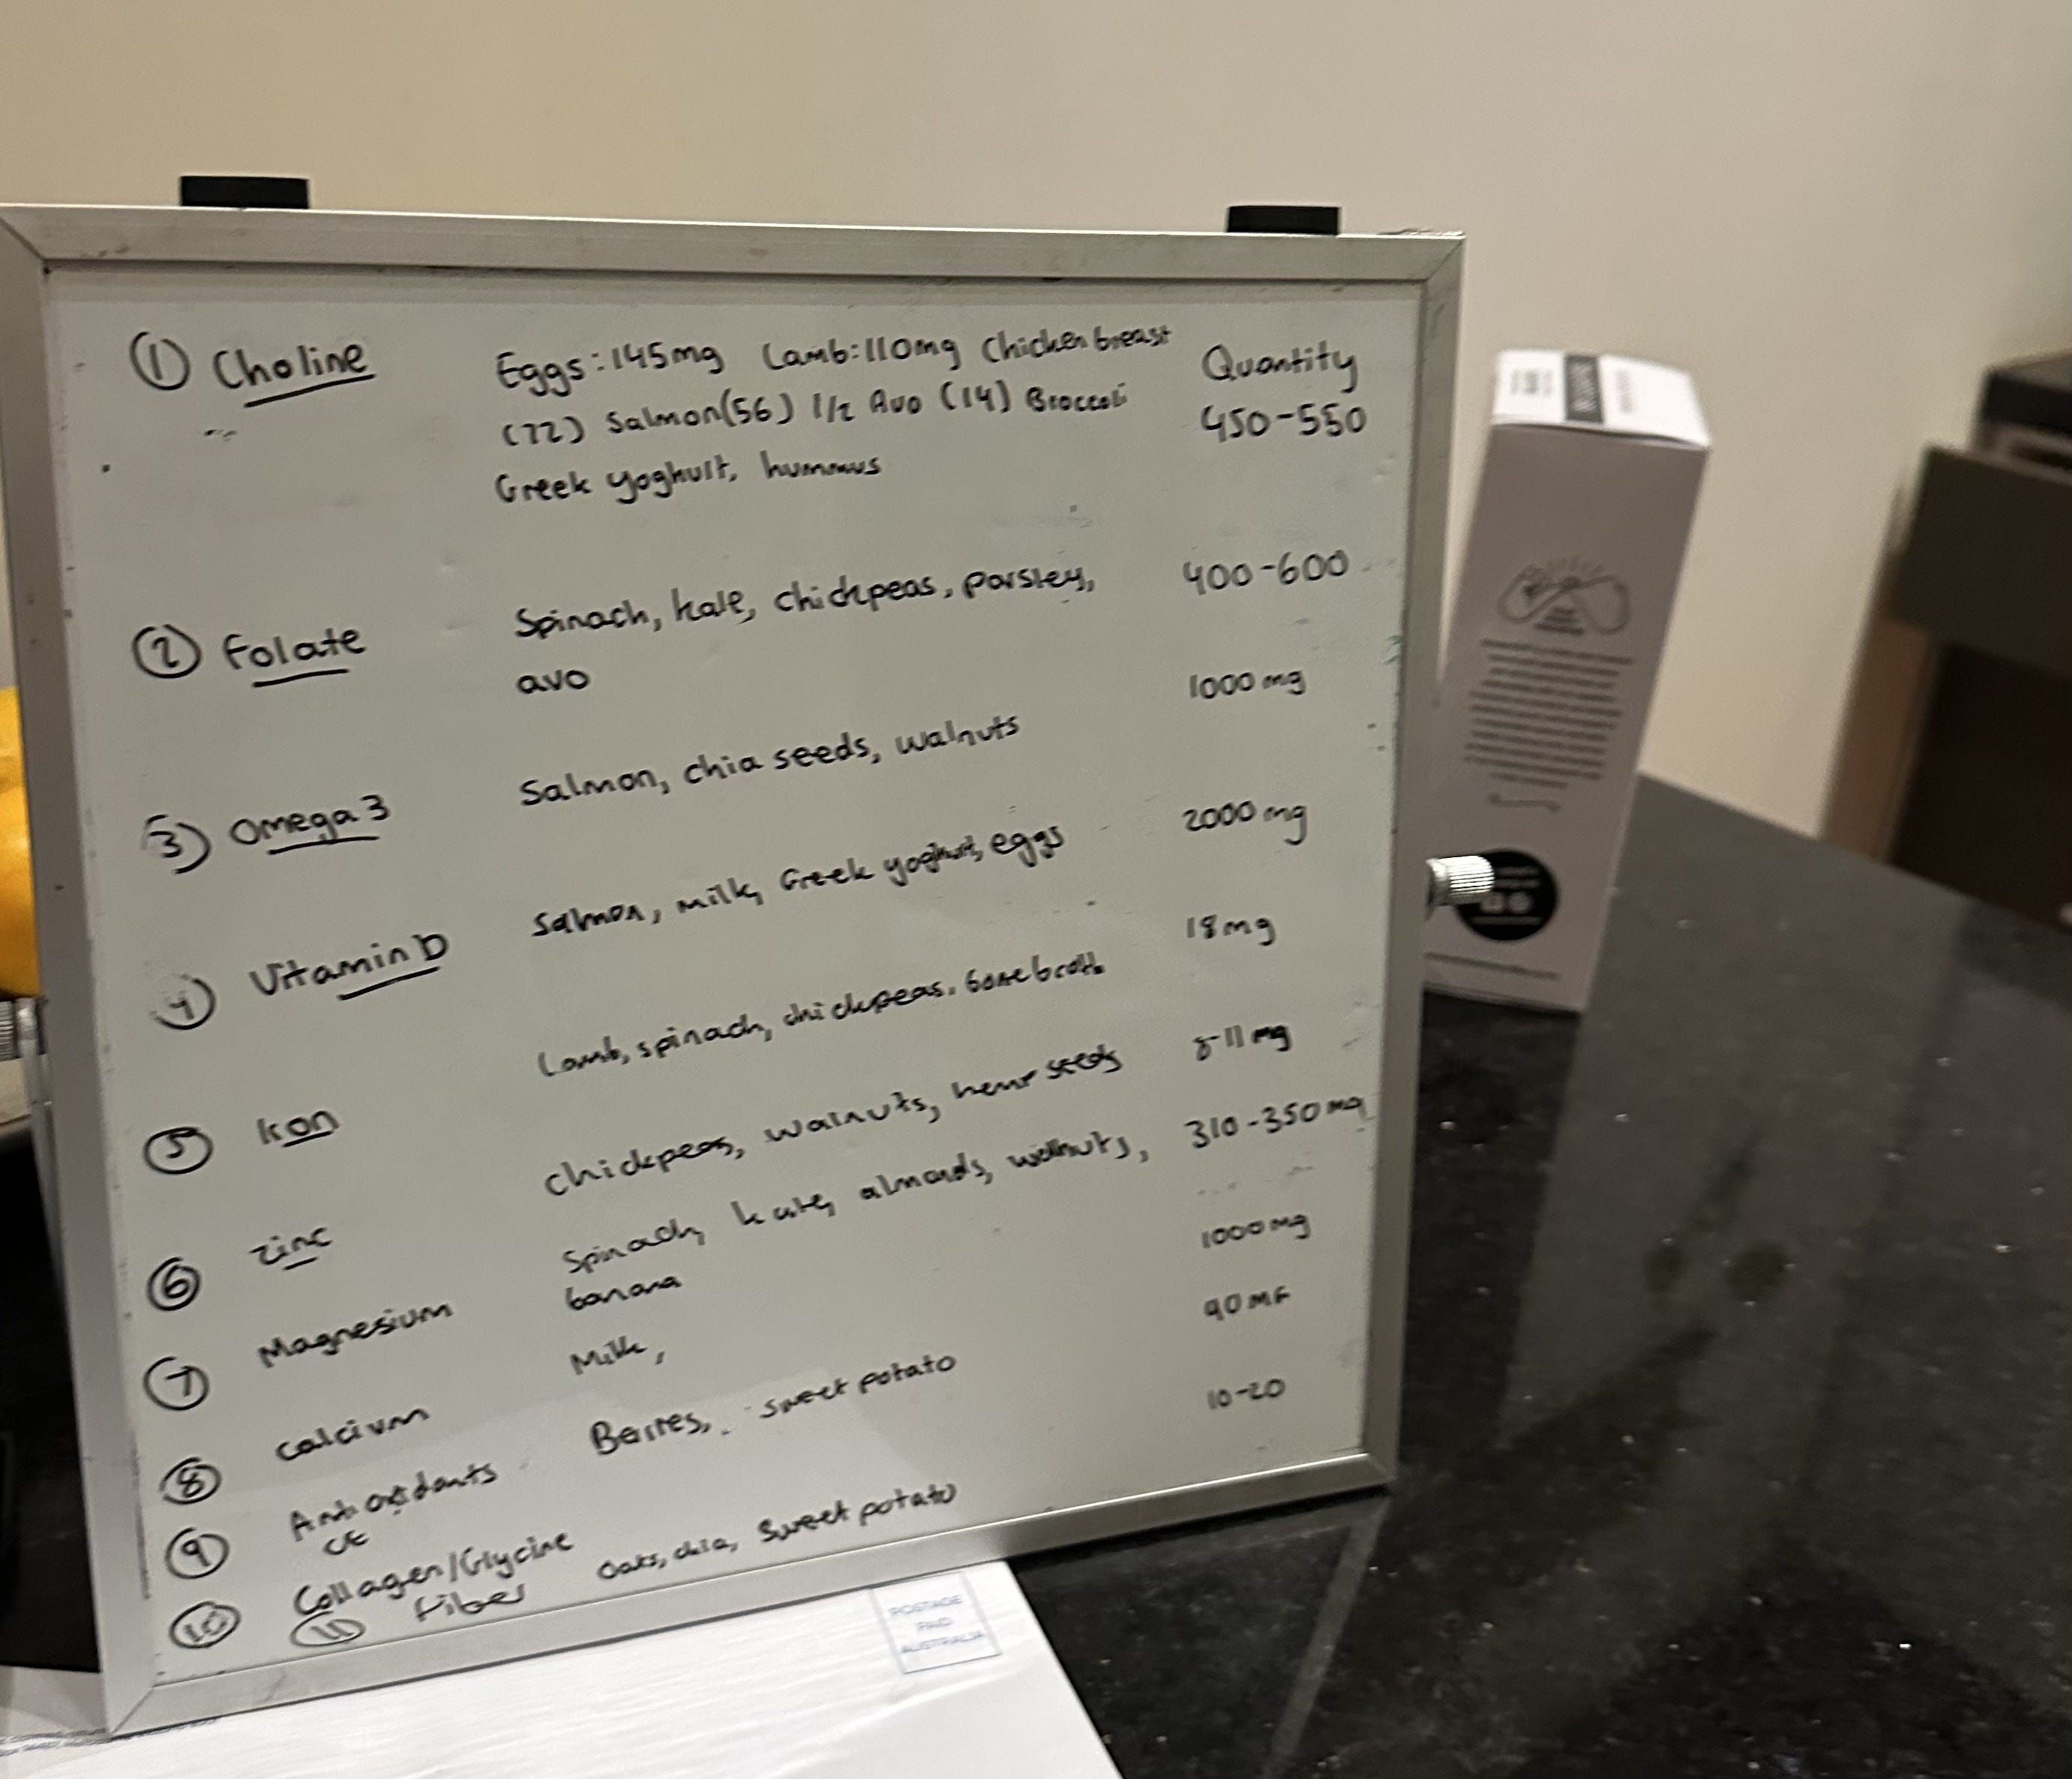 ① Choline Eggs: 145mg Lamb: 110mg Chicken breast Quantity
(72) Salmon(56) 1/2 Avo (14) Broccoli 450-550
Greek yoghurt, hummus
② Folate Spinach, kale, chickpeas, parsley, 400-600
avo
③ Omega 3 Salmon, chia seeds, walnuts 1000 mg
④ Vitamin D Salmon, milk, Greek yoghurt, eggs 2000 mg
⑤ Iron Lamb, spinach, chickpeas, bone broth 18mg
⑥ Zinc chickpeas, walnuts, hemp seeds 8-11 mg
⑦ Magnesium Spinach, kale, almonds, walnuts, 310-350 mg
banana
⑧ Calcium Milk, 1000 mg
⑨ Antioxidants Berries, sweet potato 90
⑩ Collagen/Glycine 10-20
⑪ Fiber Oats, chia, Sweet potato
POSTAGE
PAID
AUSTRALIA